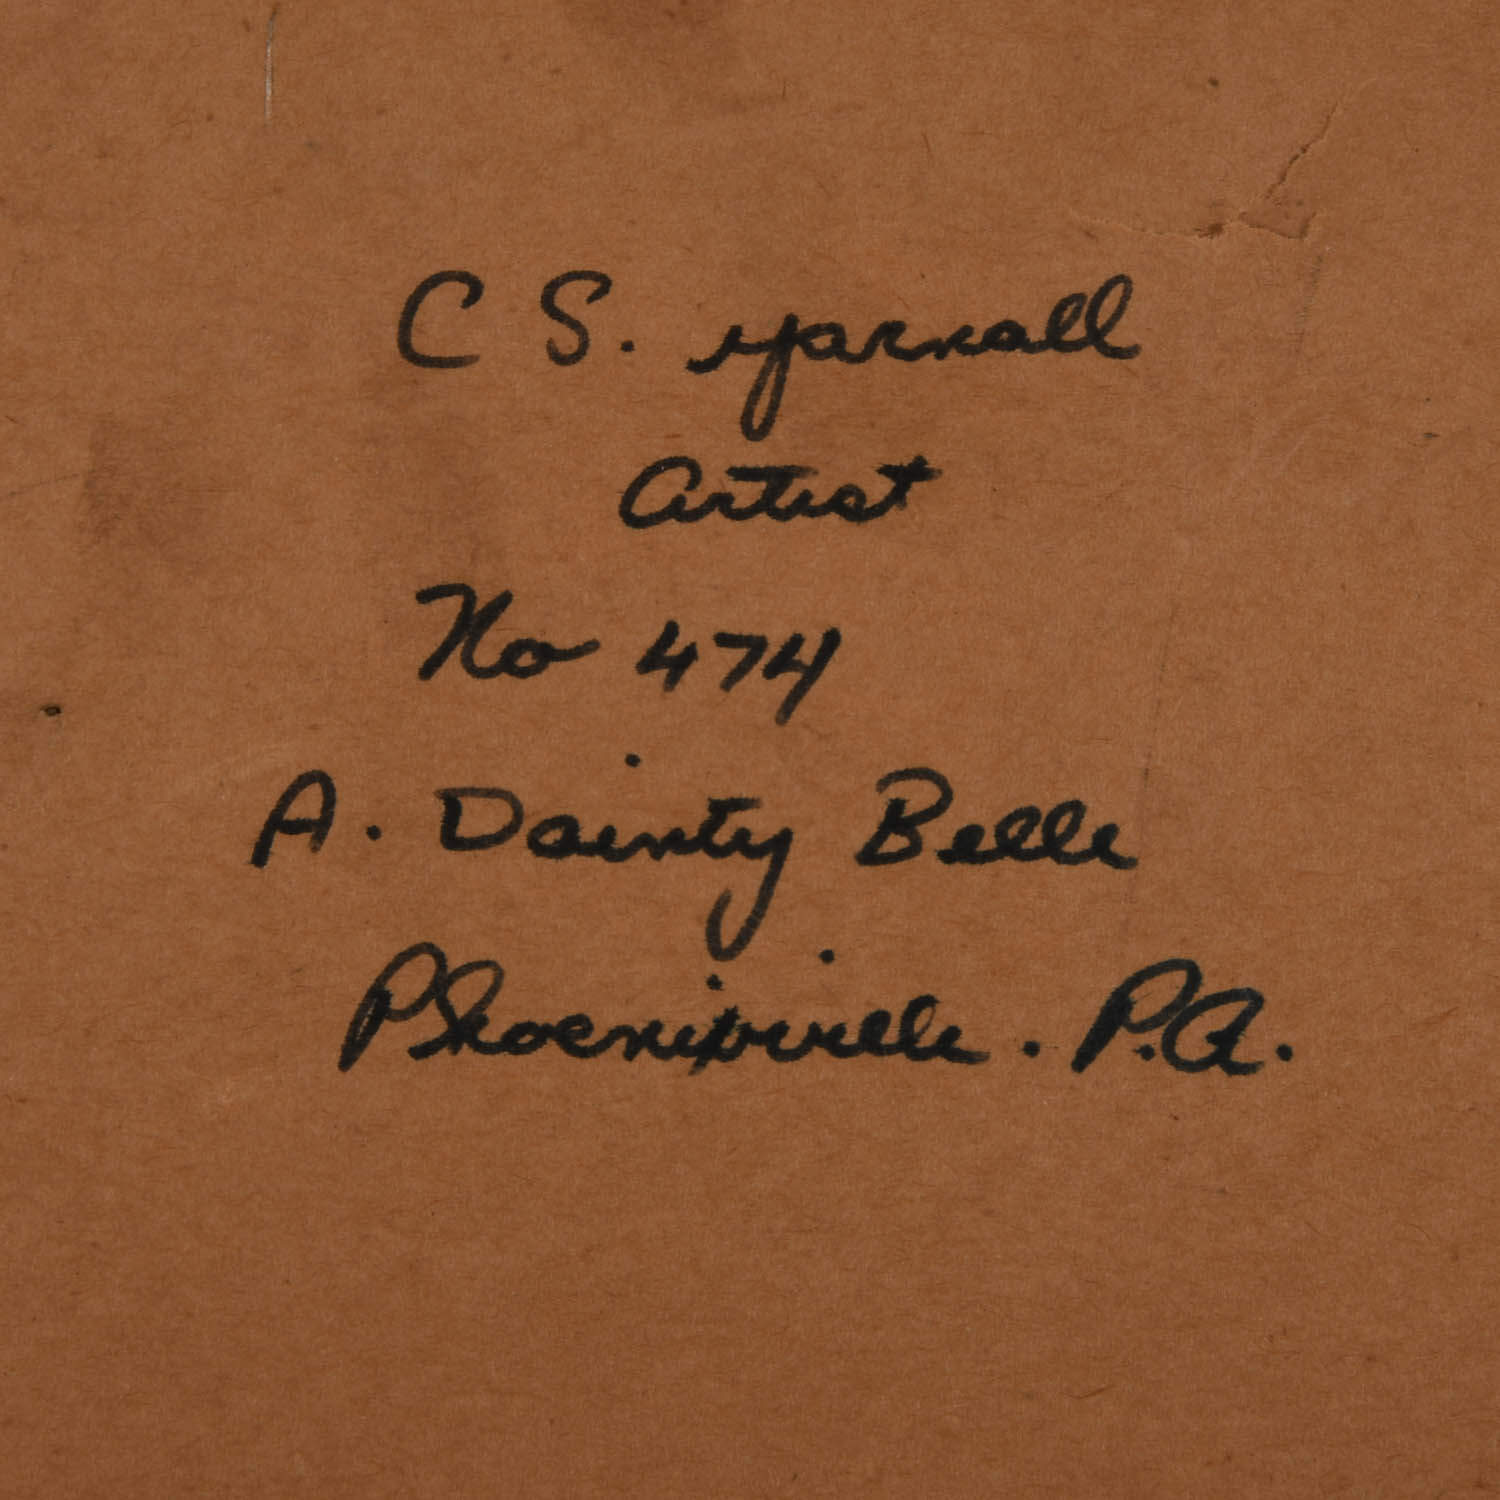 C S. Yarnall
Artist
No 474
A. Dainty Belle
Phoenixville. P.A.